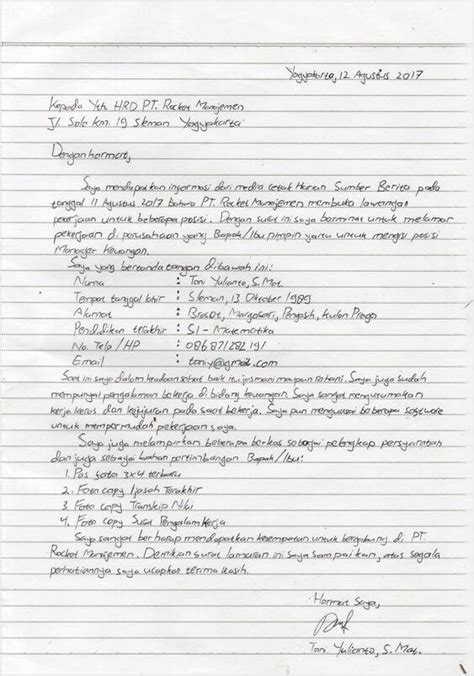 Yogyakarta, 12 Agustus 2017
Kepada Yth HRD PT. Rocket Manajemen
Jl Solo Km. 19 Sleman Yogyakarta
Dengan hormat,
Saya mendapatkan informasi dari media cetak Harian Sumber Berita pada
tanggal 11 Agustus 2017 bahwa PT. Rocket Manajemen membuka lowongan
pekerjaan untuk beberapa posisi. Dengan surat ini saya berminat untuk melamar
pekerjaan di perusahaan yang Bapak/Ibu pimpin yaitu untuk mengisi posisi
Manager Keuangan.
Saya yang bertanda tangan dibawah ini:
Nama : Toni Yulianto, S. Mat.
Tempat tanggal lahir : Sleman, 13 Oktober 1989
Alamat : Brosot, Margosari, Pengasih, Kulon Progo
Pendidikan terakhir : S1 - Matematika
No. Telp / HP :
Email : toni.y@gmail.com
Saat ini saya dalam keadaan sehat baik itu jasmani maupun rohani. Saya juga sudah
mempunyai pengalaman bekerja di bidang keuangan. Saya sangat mengutamakan
kerja keras dan kejujuran pada saat bekerja. Saya pun menguasai beberapa software
untuk mempermudah pekerjaan saya.
Saya juga melampirkan beberapa berkas sebagai pelengkap persyaratan
dan juga sebagai bahan pertimbangan Bapak/Ibu:
1. Pas foto 3x4 terbaru
2. Foto copy Ijasah Terakhir
3. Foto copy Transkip Nilai
4. Foto copy Surat Pengalam Kerja
Saya sangat berharap mendapatkan kesempatan untuk bergabung di PT.
Rocket Manajemen. Demikian surat lamaran ini saya sampaikan, atas segala
perhatiannya saya ucapkan terima kasih.
Hormat Saya,
Toni Yulianto, S. Mat.